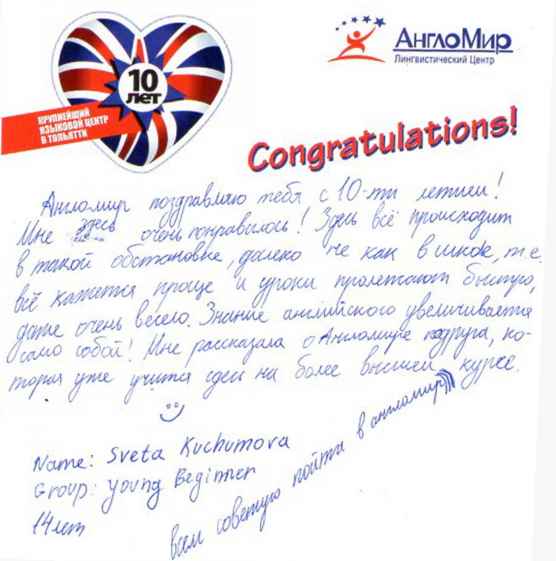 10
лет
КРУПНЕЙШИЙ
ЯЗЫКОВОЙ ЦЕНТР
В ТОЛЬЯТТИ
АНГЛОМИР
Лингвистический Центр
Congratulations!
Англомир поздравляю тебя с 10-ти летием!
Мне здесь очень понравилось! Здесь всё происходит
в такой обстановке, далеко не как в школе, т.е.
всё кажется проще и уроки пролетают быстро,
даже очень весело. Знание английского увеличивается
само собой! Мне рассказала о Англомире подруга, ко-
торая уже учится здесь на более высшем курсе.
Name: Sveta Kuchumova
Group: Young Beginner
14 лет
всем советую пойти в англомир)))